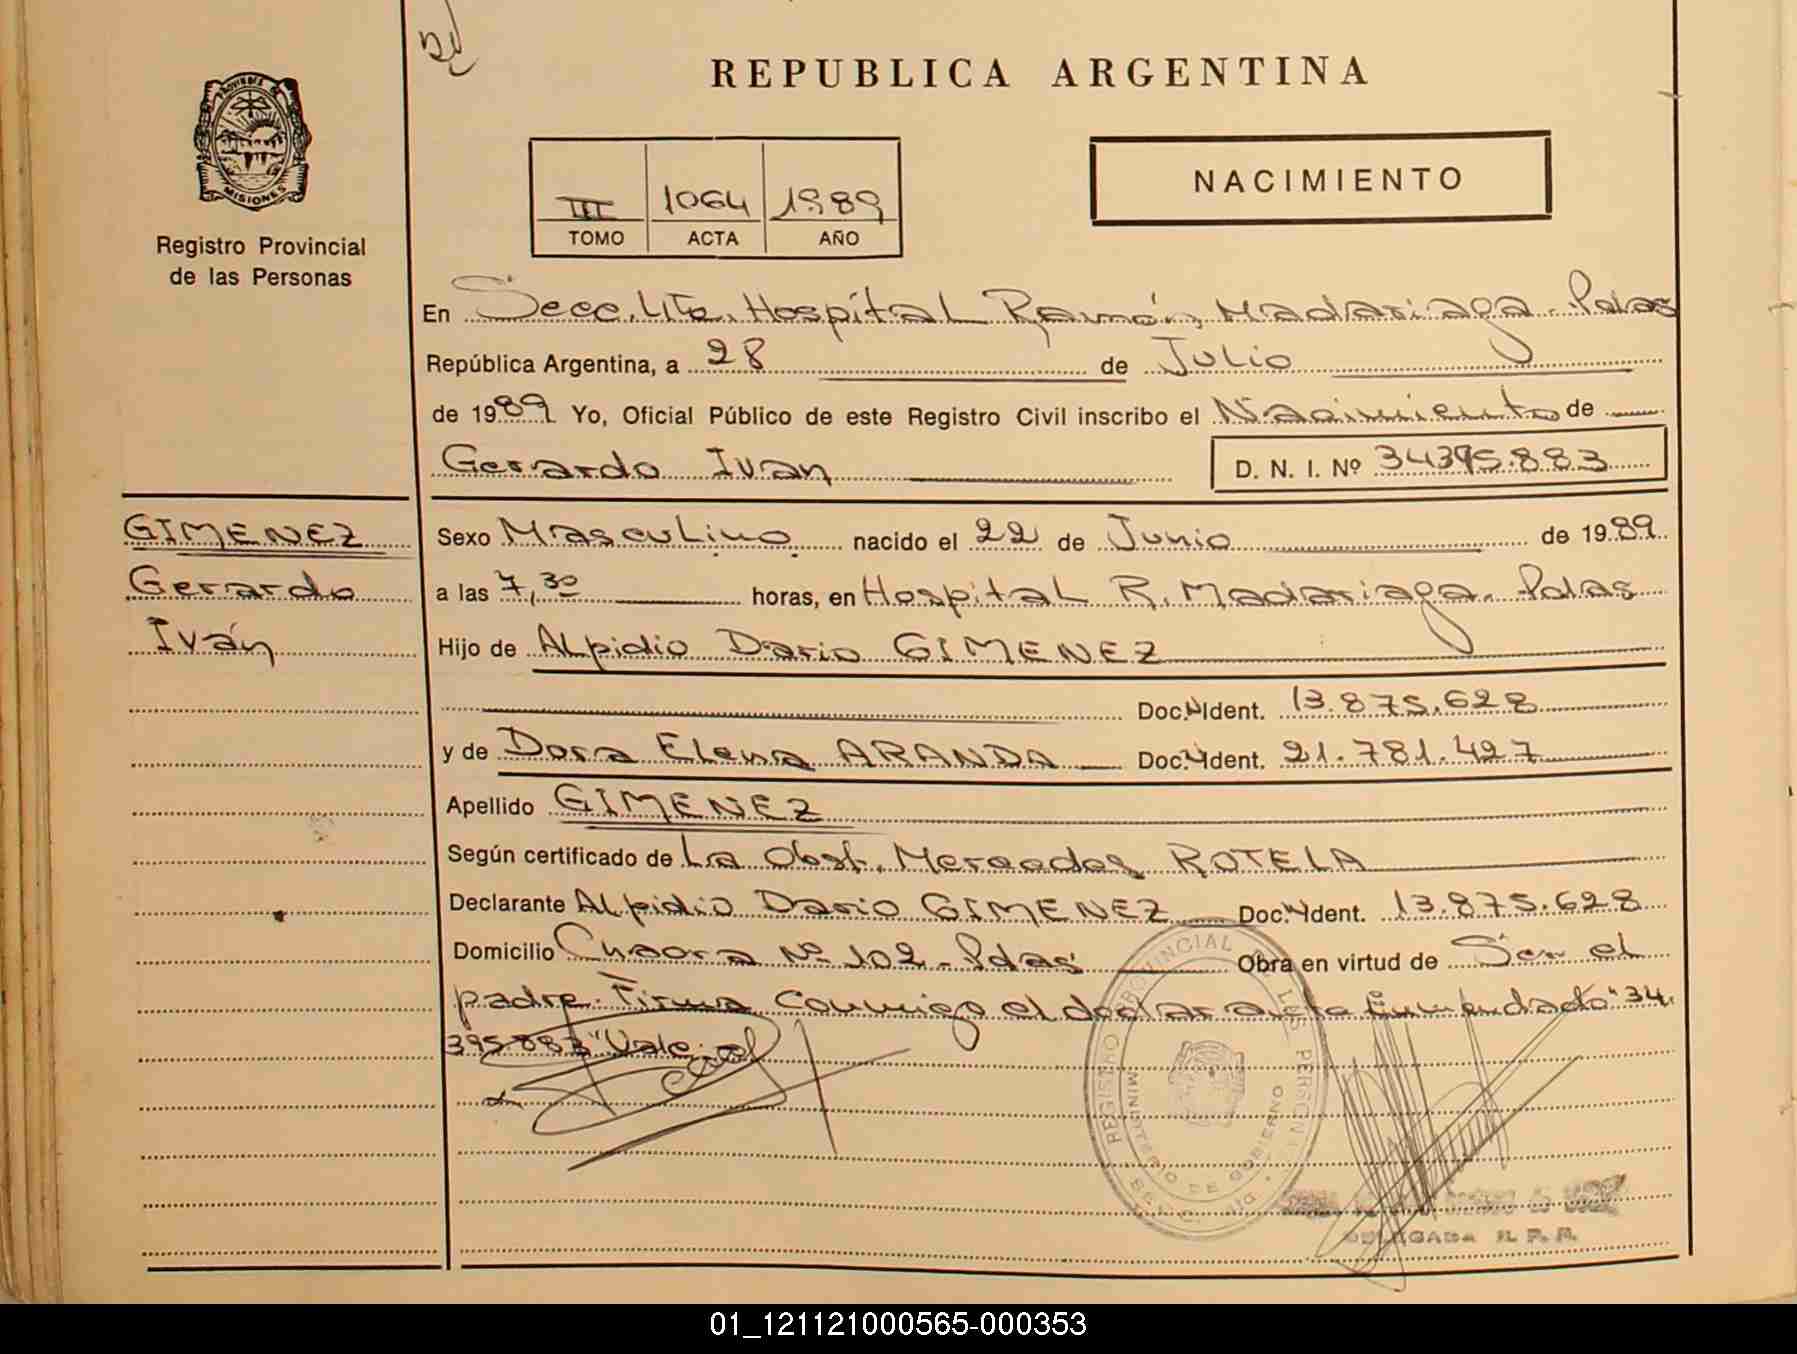 REPUBLICA ARGENTINA
PROVINCIA DE
MISIONES
Registro Provincial
de las Personas
III 1064 1989
TOMO ACTA AÑO
NACIMIENTO
En Secc. 4ta. Hospital Ramón Madariaga - Pdas
República Argentina, a 28 de Julio
de 1989 Yo, Oficial Público de este Registro Civil inscribo el Nacimiento de
Gerardo Ivan D. N. I. Nº 34395.883
GIMENEZ
Gerardo
Iván
Sexo Masculino nacido el 22 de Junio de 1989
a las 7,30 horas, en Hospital R. Madariaga. Pdas
Hijo de Alpidio Dario GIMENEZ
Doc. N Ident. 13.875.628
y de Dora Elena ARANDA Doc. N Ident. 21.781.427
Apellido GIMENEZ
Según certificado de La Obst. Mercedes ROTELA
Declarante Alpidio Dario GIMENEZ Doc. N Ident. 13.875.628
Domicilio Nº 102 - Pdas Obra en virtud de Ser el
padre. Firma conmigo el declarante Enmendado "34.
395.883" Vale
REGISTRO PROVINCIAL DE LAS PERSONAS
MINISTERIO DE GOBIERNO
DELEGADA R. P. P.
01_121121000565-000353